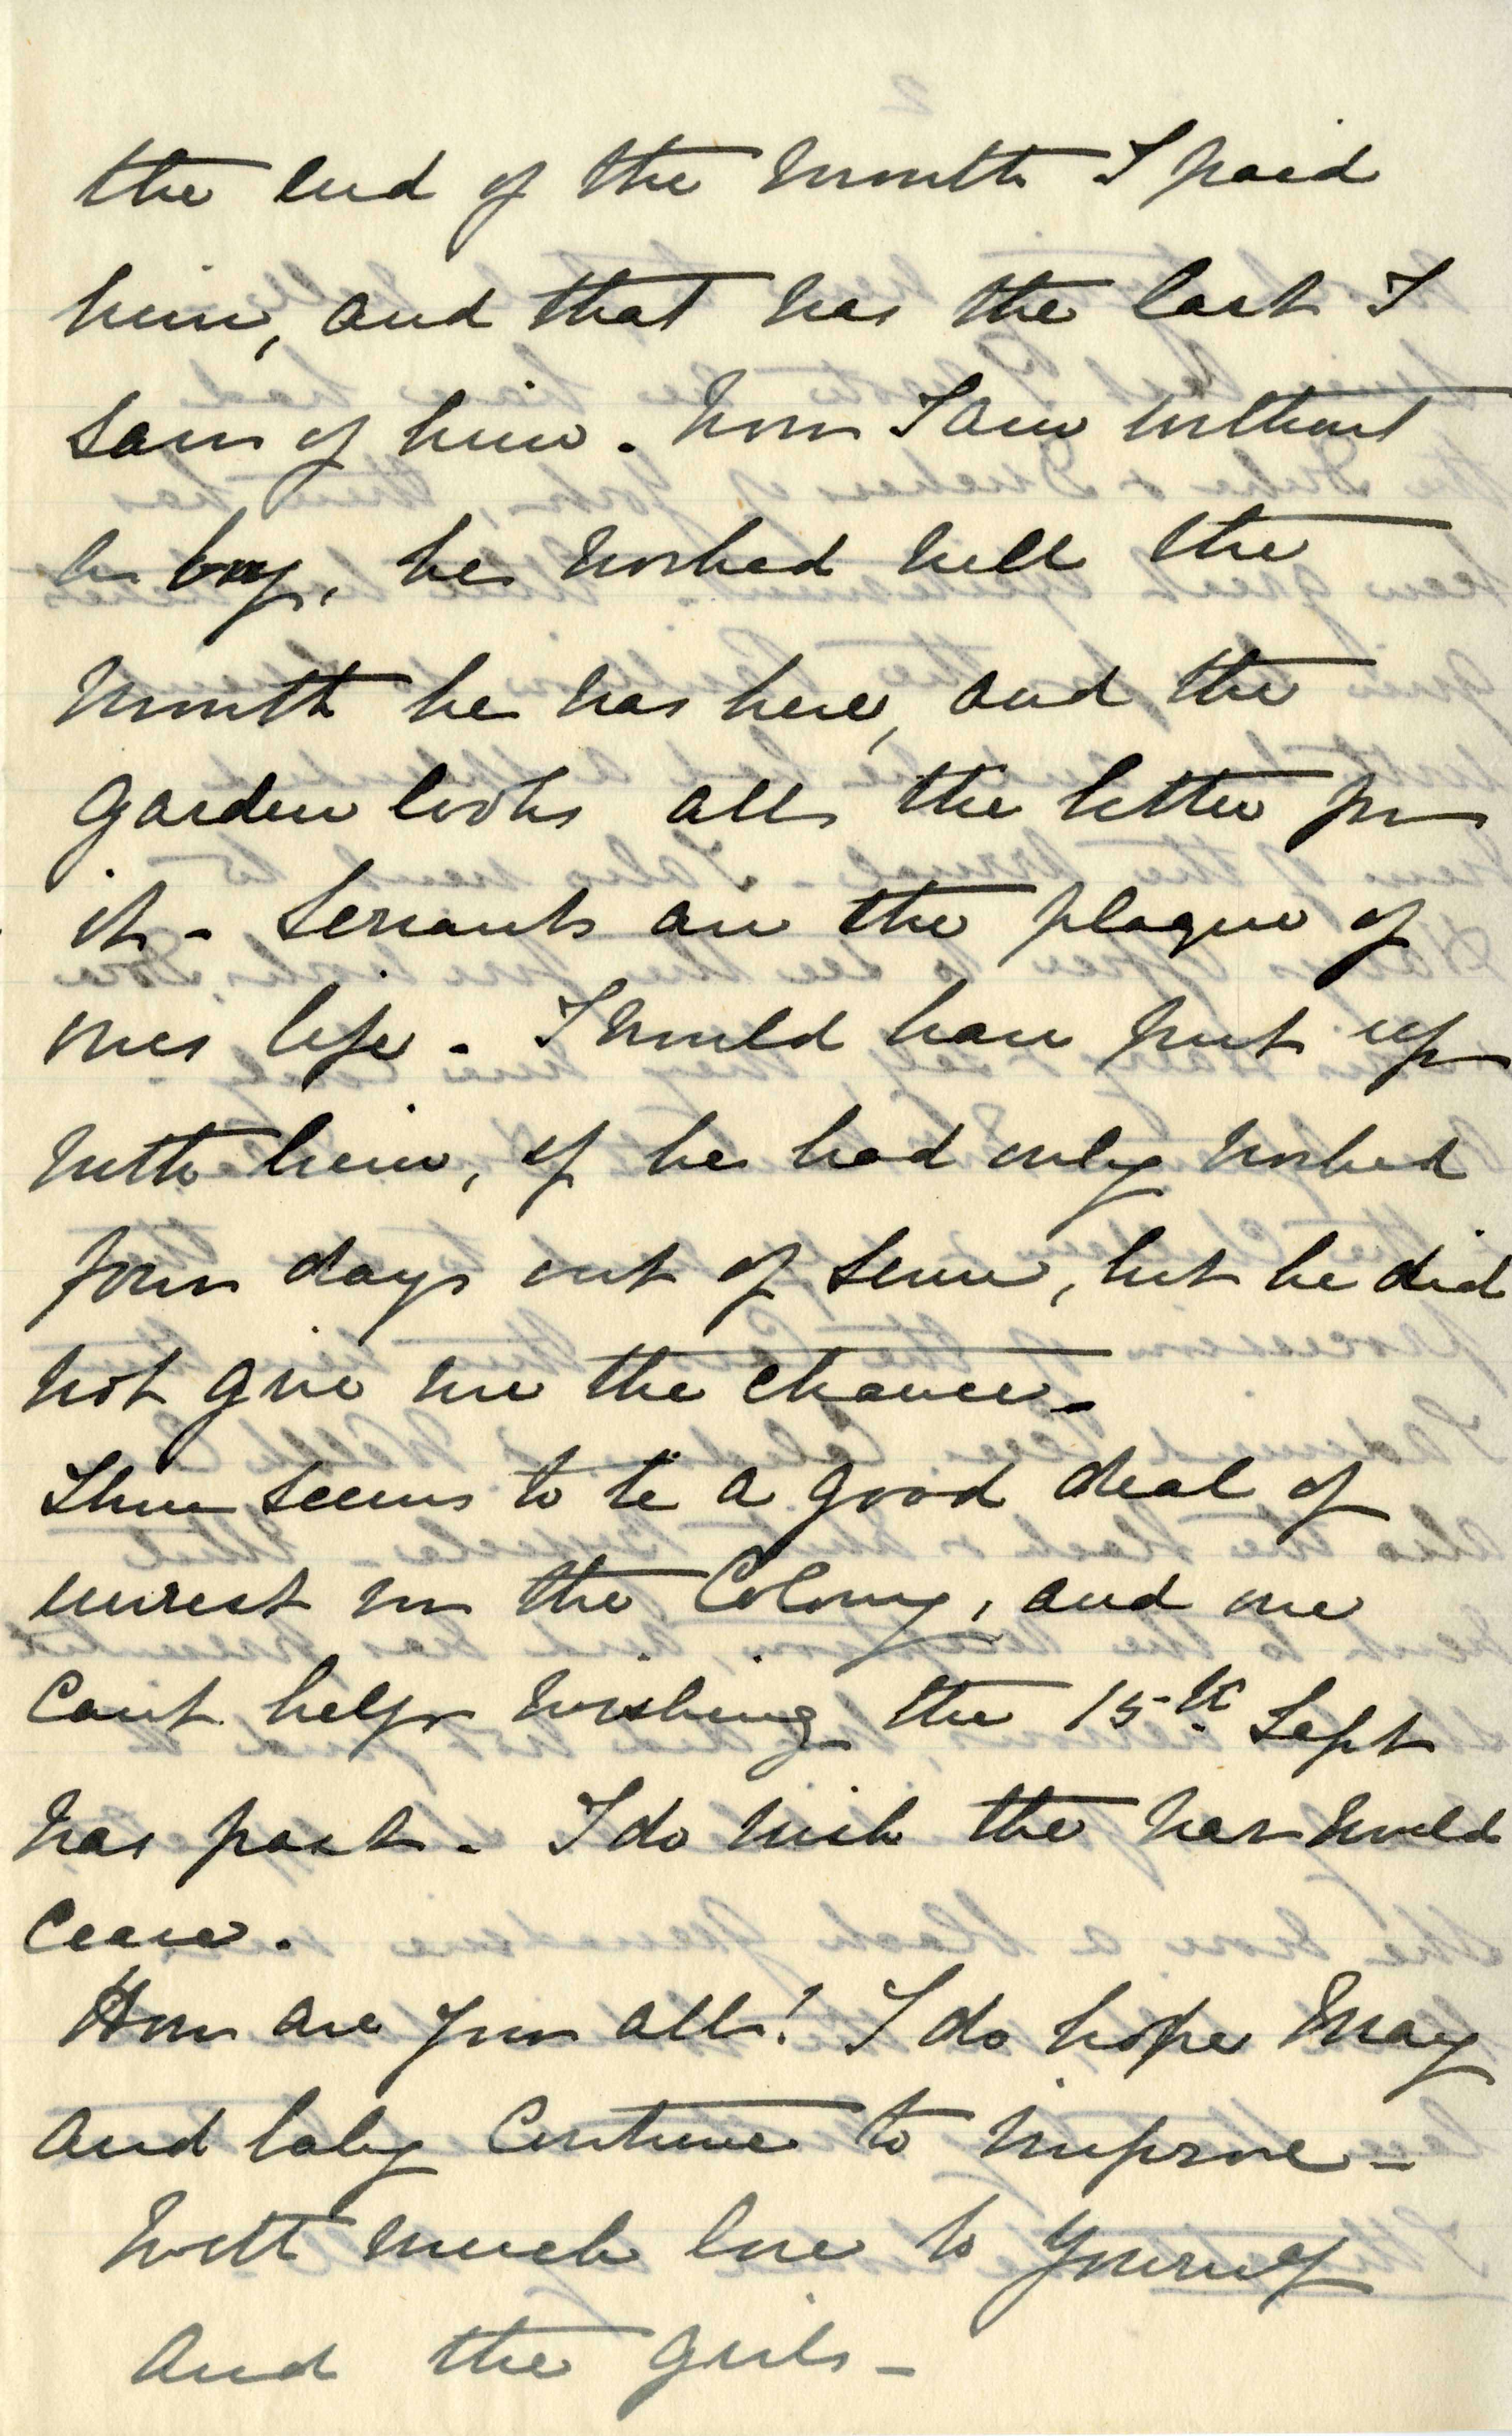 the end of the month I paid
him, and that was the last I
saw of him. Now I am without
a boy, he worked well the
month he was here, and the
garden looks all the better for
it - Servants are the plague of
ones life. I would have put up
with him, if he had only worked
four days out of seven, but he did
not give me the chance -
There seems to be a good deal of
unrest in the Colony, and one
can't help wishing the 15th Sept
was past - I do wish the war would
cease.
How are you all! I do hope May
and baby continue to improve -
With much love to yourself
and the girls -